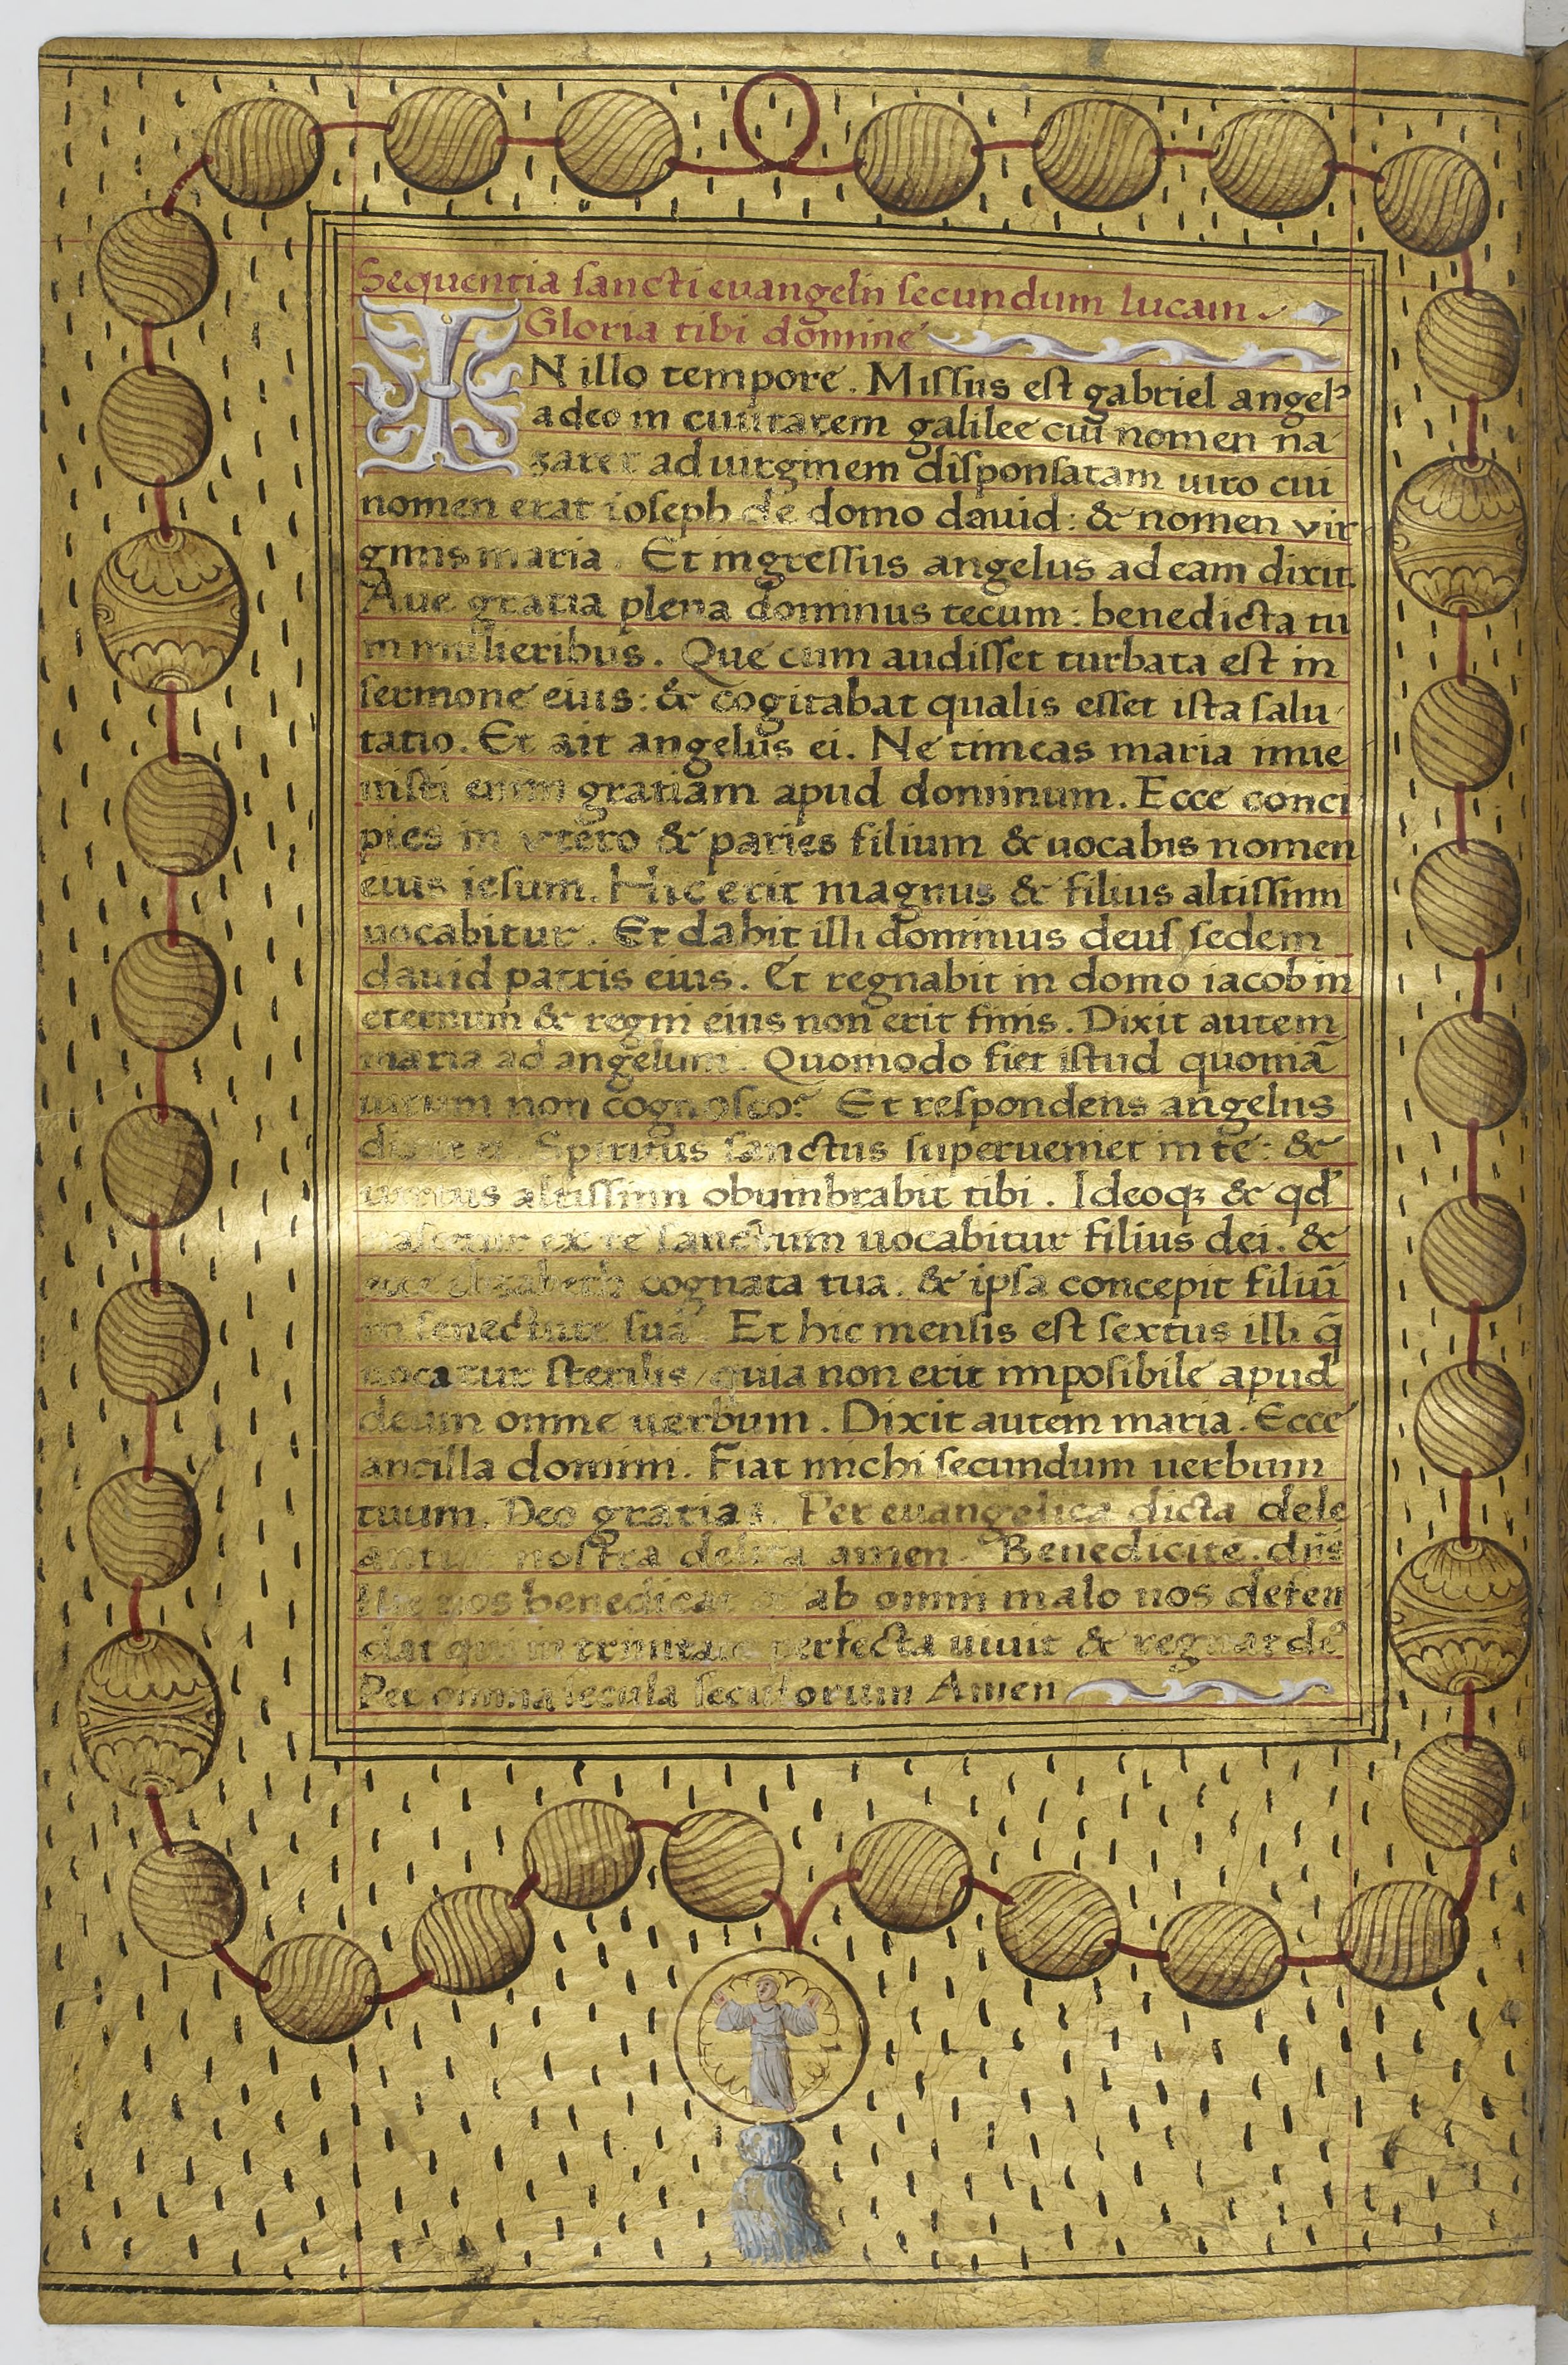 Sequentia sancti euangelii secundum lucam
Gloria tibi dōmine
IN illo tempore. Missus est gabriel angelꝰ
a deo in ciuitatem galilee cui nomen na
zaret ad uirginem disponsatam uiro cui
nomen erat ioseph de domo dauid: & nomen vir
ginis maria. Et ingressus angelus ad eam dixit.
Aue gratia plena dominus tecum: benedicta tu
in mulieribus. Que cum audisset turbata est in
sermone eius: & cogitabat qualis esset ista salu
tatio. Et ait angelus ei. Ne timeas maria inue
nisti enim gratiam apud dominum. Ecce conci
pies in vtero & paries filium & uocabis nomen
eius iesum. Hic erit magnus & filius altissimi
uocabitur. Et dabit illi dominus deus sedem
dauid patris eius. Et regnabit in domo iacob in
eternum & regni eius non erit finis. Dixit autem
maria ad angelum. Quomodo fiet istud quoniā
uirum non cognosco? Et respondens angelus
dixit ei. Spiritus sanctus superueniet in te: &
uirtus altissimi obumbrabit tibi. Ideoqꝫ & qd̓
nascetur ex te sanctum uocabitur filius dei. &
ecce elizabeth cognata tua: & ipsa concepit filiū
in senectute sua. Et hic mensis est sextus illi q̄
uocatur sterilis / quia non erit imposibile apud
deum omne uerbum. Dixit autem maria. Ecce
ancilla domini. Fiat michi secundum uerbum
tuum. Deo gratias. Per euangelica dicta dele
antur nostra delicta amen. Benedicite. dn̄s
nos benedicat & ab omni malo nos defen
dat qui in trinitate perfecta uiuit & regnat deꝰ
Per omnia secula seculorum Amen